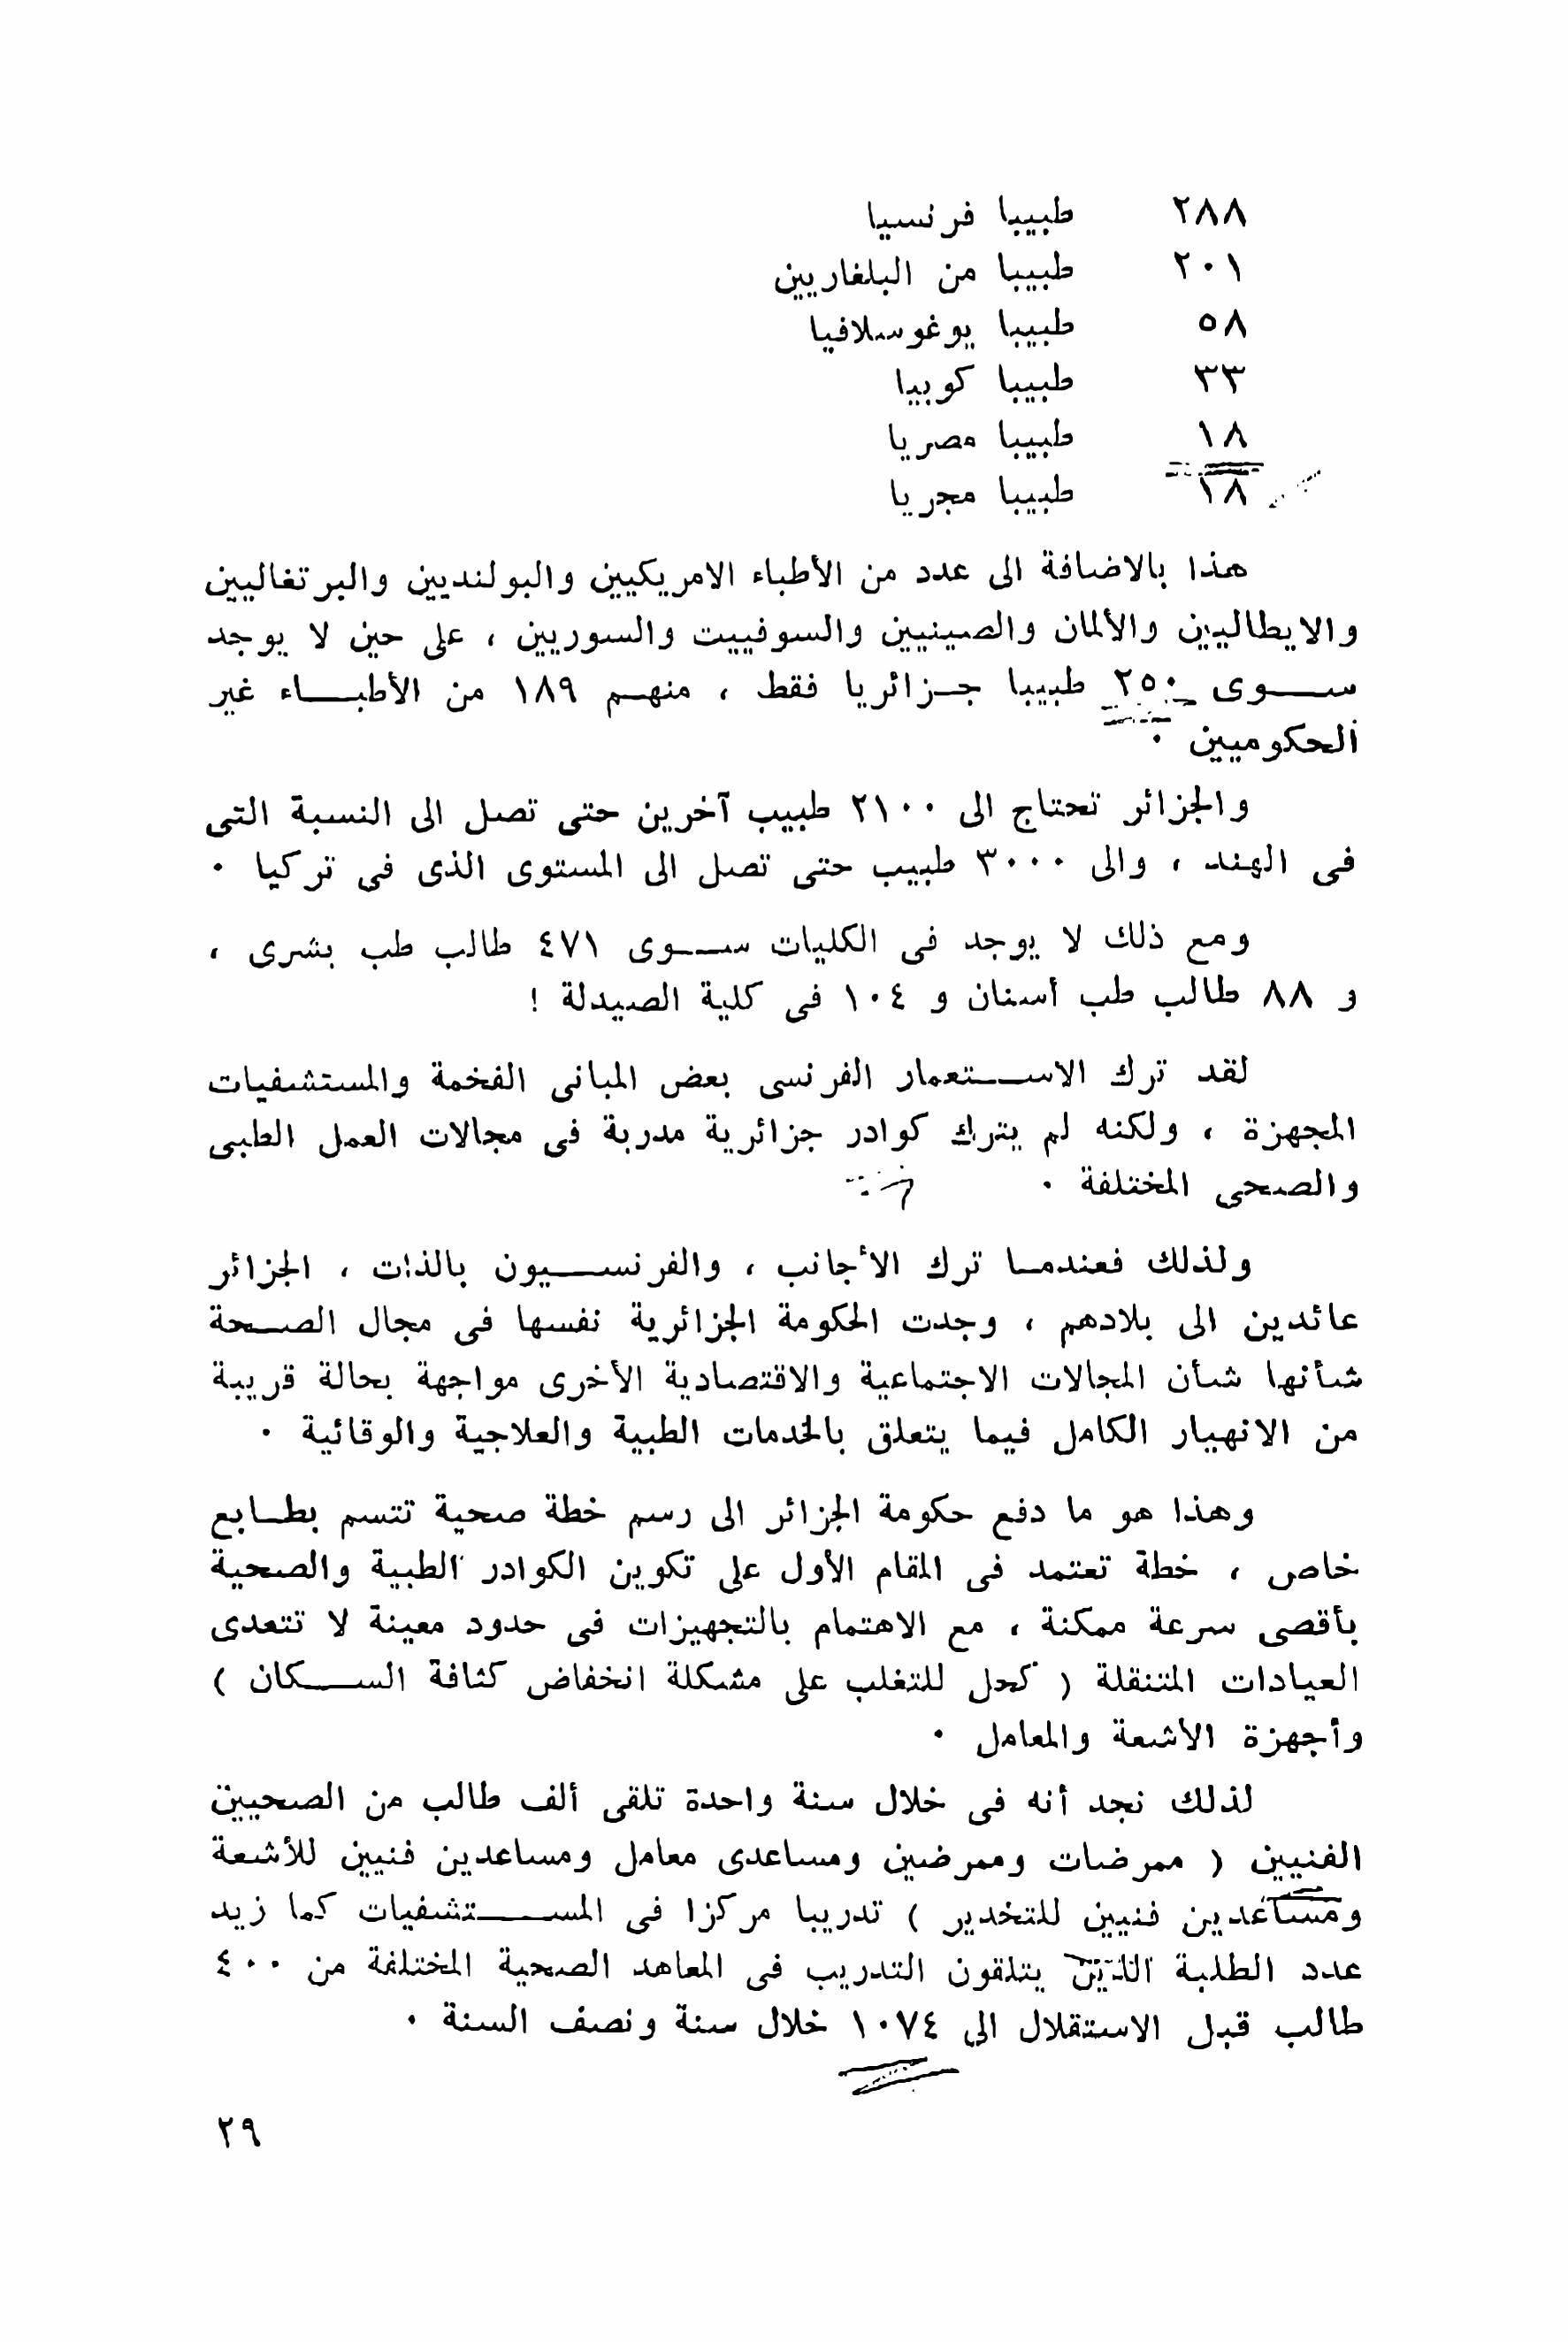 ٢٨٨ طبيبا فرنسيا
٢٠١ طبيبا من البلغاريين
٥٨ طبيبا يوغوسلافيا
٣٣ طبيبا كوبيا
١٨ طبيبا مصريا
١٨ طبيبا مجريا
هذا بالاضافة الى عدد من الأطباء الامريكيين والبولنديين والبرتغاليين
والايطاليين والألمان والصينيين والسوفييت والسوريين ، على حين لا يوجد
سوى ٢٥٠ طبيبا جزائريا فقط ، منهم ١٨٩ من الأطباء غير
الحكوميين ٠
والجزائر تحتاج الى ٢١٠٠ طبيب آخرين حتى تصل الى النسبة التى
فى الهند ، والى ٣٠٠٠ طبيب حتى تصل الى المستوى الذى فى تركيا ٠
ومع ذلك لا يوجد فى الكليات سوى ٤٧١ طالب طب بشرى ،
و ٨٨ طالب طب أسنان و ١٠٤ فى كلية الصيدلة !
لقد ترك الاستعمار الفرنسى بعض المبانى الفخمة والمستشفيات
المجهزة ، ولكنه لم يترك كوادر جزائرية مدربة فى مجالات العمل الطبى
والصحى المختلفة ٠
ولذلك فعندما ترك الأجانب ، والفرنسيون بالذات ، الجزائر
عائدين الى بلادهم ، وجدت الحكومة الجزائرية نفسها فى مجال الصحة
شأنها شأن المجالات الاجتماعية والاقتصادية الأخرى مواجهة بحالة قريبة
من الانهيار الكامل فيما يتعلق بالخدمات الطبية والعلاجية والوقائية ٠
وهذا هو ما دفع حكومة الجزائر الى رسم خطة صحية تتسم بطابع
خاص ، خطة تعتمد فى المقام الأول على تكوين الكوادر الطبية والصحية
بأقصى سرعة ممكنة ، مع الاهتمام بالتجهيزات فى حدود معينة لا تتعدى
العيادات المتنقلة ( كحل للتغلب على مشكلة انخفاض كثافة السكان )
وأجهزة الأشعة والمعامل ٠
لذلك نجد أنه فى خلال سنة واحدة تلقى ألف طالب من الصحيين
الفنيين ( ممرضات وممرضين ومساعدى معامل ومساعدين فنيين للأشعة
ومساعدين فنيين للتخدير ) تدريبا مركزا فى المستشفيات كما زيد
عدد الطلبة الذين يتلقون التدريب فى المعاهد الصحية المختلفة من ٤٠٠
طالب قبل الاستقلال الى ١٠٧٤ خلال سنة ونصف السنة ٠
٢٩